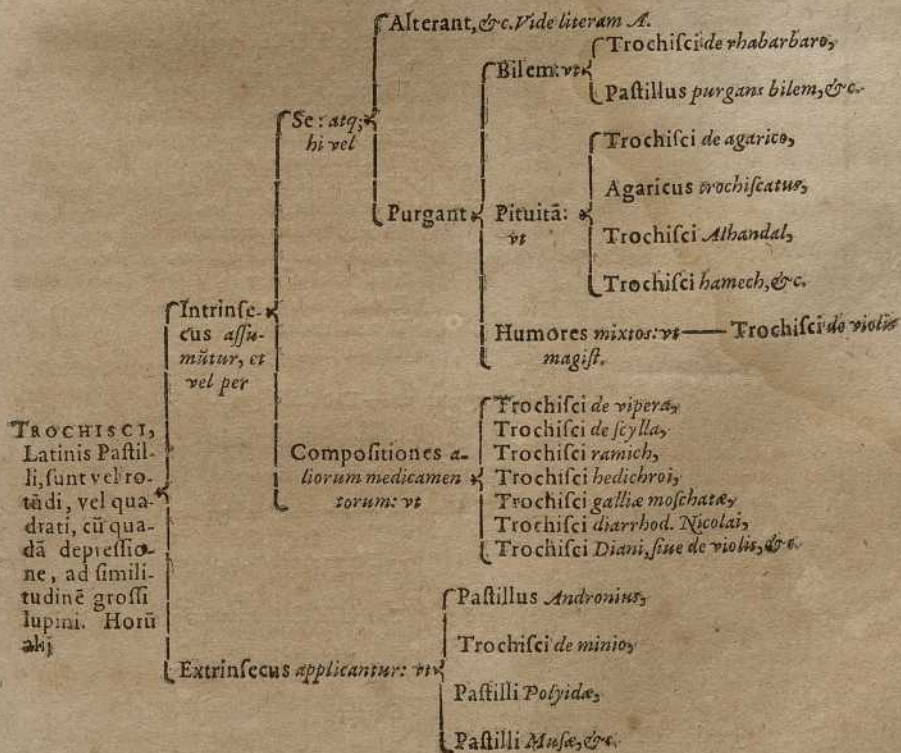 TROCHISCI,
Latinis Paſtil-
li, ſunt vel ro-
tūdi, vel qua-
drati, cū qua-
dā depreſſio-
ne, ad ſimili-
tudinē groſſi
lupini. Horū
alij
Intrinſe-
cus aſſu-
mūtur, et
vel per
Se: atq;
hi vel
Alterant, &c. Vide literam A.
Purgant
Bilem: vt
Trochiſci de rhabarbaro,
Paſtillus purgans bilem, &c.
Pituitā:
vt
Trochiſci de agarico,
Agaricus trochiſcatus,
Trochiſci Alhandal,
Trochiſci hamech, &c.
Humores mixtos: vt
magiſt.
Trochiſci de violis
Compoſitiones a-
liorum medicamen
torum: vt
Trochiſci de vipera,
Trochiſci de ſcylla,
Trochiſci ramich,
Trochiſci hedichroi,
Trochiſci galliæ moſchatæ,
Trochiſci diarrhod. Nicolai,
Trochiſci Diani, ſiue de violis, &c.
Extrinſecus applicantur: vt
Paſtillus Andronius,
Trochiſci de minio,
Paſtilli Polyidæ,
Paſtilli Muſæ, &c.